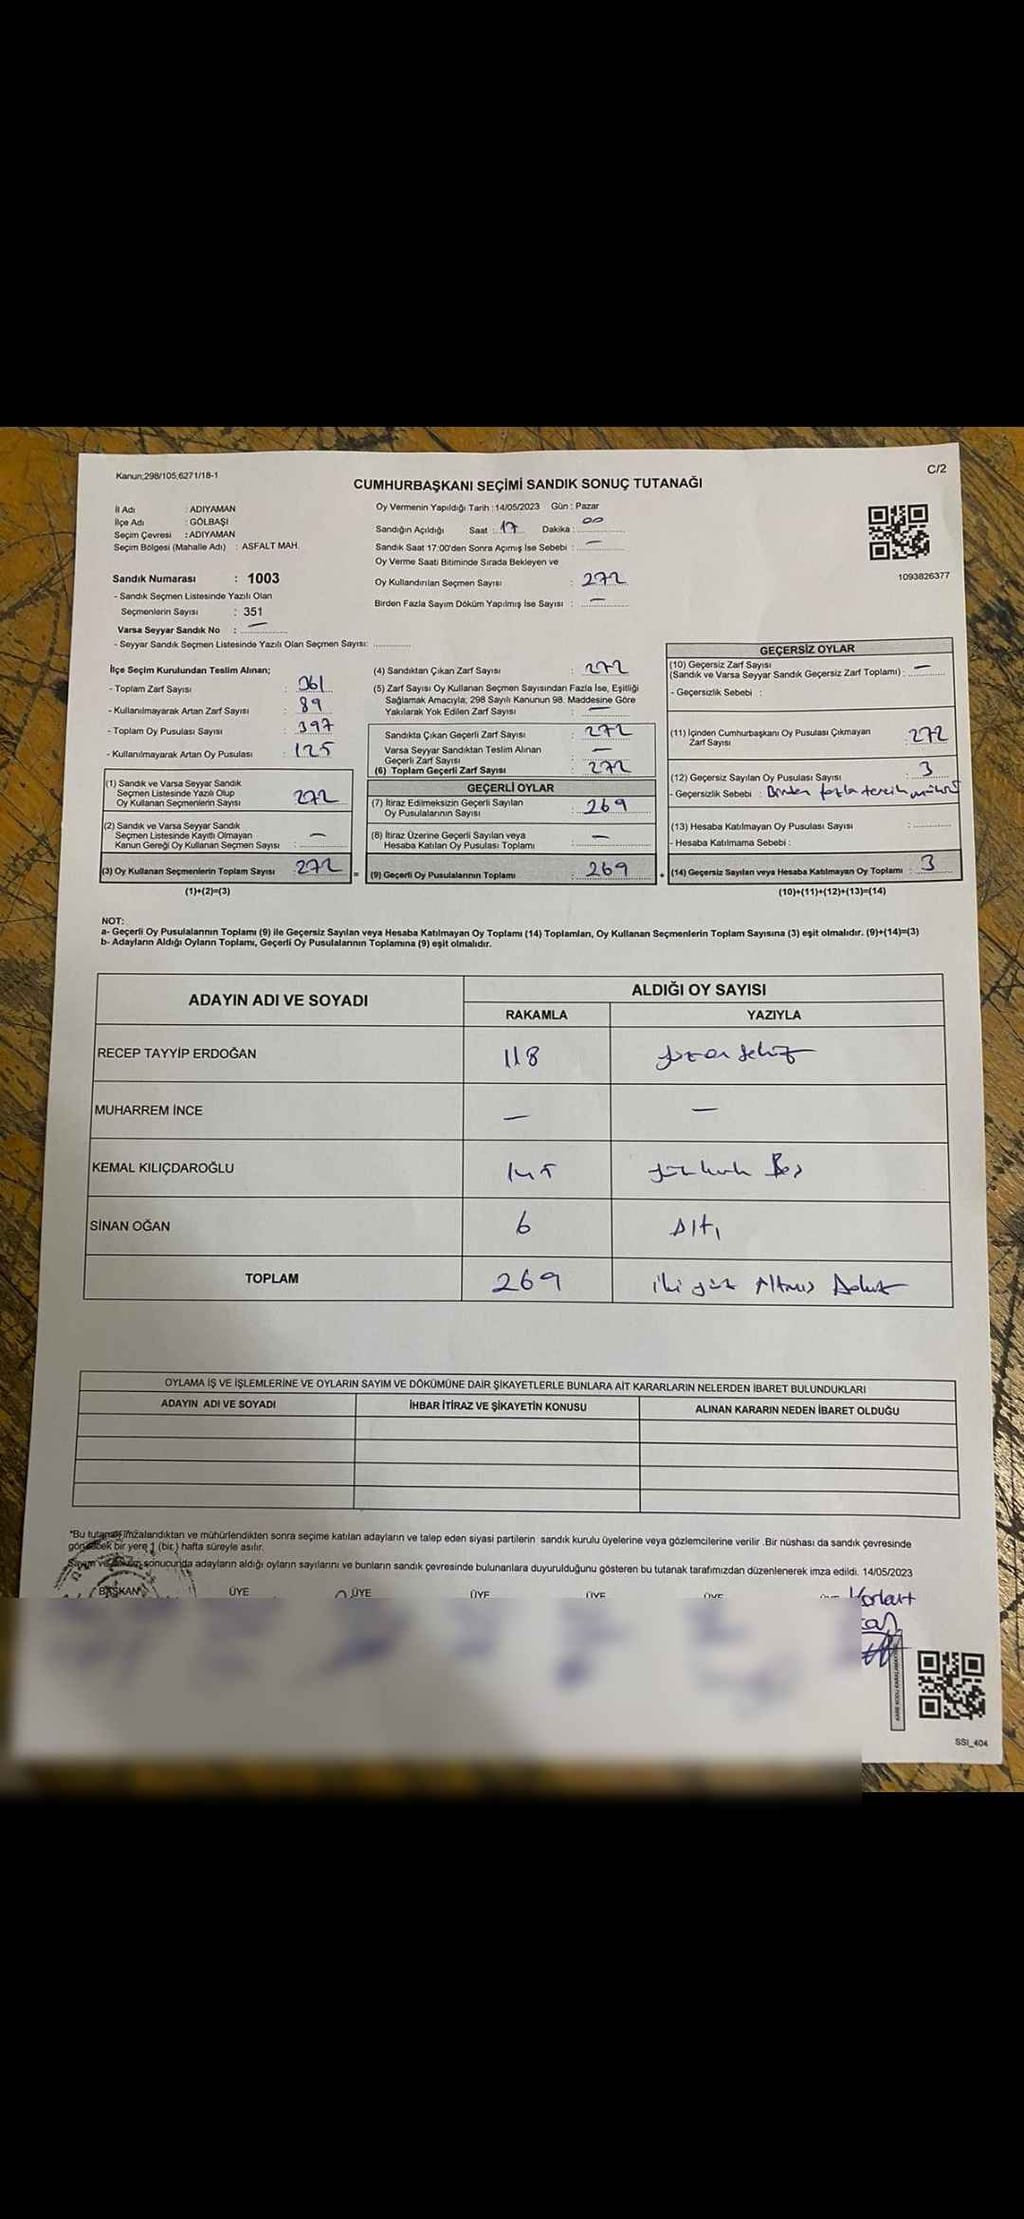 Kanun;298/105,6271/18-1
C/2
CUMHURBAŞKANI SEÇİMİ SANDIK SONUÇ TUTANAĞI
İl Adı : ADIYAMAN
İlçe Adı : GÖLBAŞI
Seçim Çevresi : ADIYAMAN
Seçim Bölgesi (Mahalle Adı) : ASFALT MAH.
Sandık Numarası : 1003
- Sandık Seçmen Listesinde Yazılı Olan
Seçmenlerin Sayısı : 351
Varsa Seyyar Sandık No : —
- Seyyar Sandık Seçmen Listesinde Yazılı Olan Seçmen Sayısı:
Oy Vermenin Yapıldığı Tarih : 14/05/2023 Gün : Pazar
Sandığın Açıldığı Saat : 17 Dakika : 00
Sandık Saat 17:00'den Sonra Açımış İse Sebebi : —
Oy Verme Saati Bitiminde Sırada Bekleyen ve
Oy Kullandırılan Seçmen Sayısı : 272
Birden Fazla Sayım Döküm Yapılmış İse Sayısı : —
1093826377
İlçe Seçim Kurulundan Teslim Alınan;
- Toplam Zarf Sayısı : 361
- Kullanılmayarak Artan Zarf Sayısı : 89
- Toplam Oy Pusulası Sayısı : 397
- Kullanılmayarak Artan Oy Pusulası : 125
(1) Sandık ve Varsa Seyyar Sandık
Seçmen Listesinde Yazılı Olup
Oy Kullanan Seçmenlerin Sayısı 272
(2) Sandık ve Varsa Seyyar Sandık
Seçmen Listesinde Kayıtlı Olmayan
Kanun Gereği Oy Kullanan Seçmen Sayısı : —
(3) Oy Kullanan Seçmenlerin Toplam Sayısı 272
(1)+(2)=(3)
(4) Sandıktan Çıkan Zarf Sayısı : 272
(5) Zarf Sayısı Oy Kullanan Seçmen Sayısından Fazla İse, Eşitliği
Sağlamak Amacıyla, 298 Sayılı Kanunun 98. Maddesine Göre
Yakılarak Yok Edilen Zarf Sayısı : —
Sandıkta Çıkan Geçerli Zarf Sayısı : 272
Varsa Seyyar Sandıktan Teslim Alınan
Geçerli Zarf Sayısı : —
(6) Toplam Geçerli Zarf Sayısı : 272
GEÇERLİ OYLAR
(7) İtiraz Edilmeksizin Geçerli Sayılan
Oy Pusulalarının Sayısı : 269
(8) İtiraz Üzerine Geçerli Sayılan veya
Hesaba Katılan Oy Pusulası Toplamı : —
(9) Geçerli Oy Pusulalarının Toplamı : 269
GEÇERSİZ OYLAR
(10) Geçersiz Zarf Sayısı
(Sandık ve Varsa Seyyar Sandık Geçersiz Zarf Toplamı) : —
- Geçersizlik Sebebi :
(11) İçinden Cumhurbaşkanı Oy Pusulası Çıkmayan
Zarf Sayısı : 272
(12) Geçersiz Sayılan Oy Pusulası Sayısı : 3
- Geçersizlik Sebebi : Birden fazla tercih mührü
(13) Hesaba Katılmayan Oy Pusulası Sayısı :
- Hesaba Katılmama Sebebi :
(14) Geçersiz Sayılan veya Hesaba Katılmayan Oy Toplamı : 3
(10)+(11)+(12)+(13)=(14)
NOT:
a- Geçerli Oy Pusulalarının Toplamı (9) ile Geçersiz Sayılan veya Hesaba Katılmayan Oy Toplamı (14) Toplamları, Oy Kullanan Seçmenlerin Toplam Sayısına (3) eşit olmalıdır. (9)+(14)=(3)
b- Adayların Aldığı Oyların Toplamı, Geçerli Oy Pusulalarının Toplamına (9) eşit olmalıdır.
ADAYIN ADI VE SOYADI
ALDIĞI OY SAYISI
RAKAMLA YAZIYLA
RECEP TAYYİP ERDOĞAN 118 yüzon sekiz
MUHARREM İNCE — —
KEMAL KILIÇDAROĞLU 145 yüzkırk Beş
SİNAN OĞAN 6 Altı
TOPLAM 269 iki yüz Altmış Dokuz
OYLAMA İŞ VE İŞLEMLERİNE VE OYLARIN SAYIM VE DÖKÜMÜNE DAİR ŞİKAYETLERLE BUNLARA AİT KARARLARIN NELERDEN İBARET BULUNDUKLARI
ADAYIN ADI VE SOYADI İHBAR İTİRAZ VE ŞİKAYETİN KONUSU ALINAN KARARIN NEDEN İBARET OLDUĞU
*Bu tutanak imzalandıktan ve mühürlendikten sonra seçime katılan adayların ve talep eden siyasi partilerin sandık kurulu üyelerine veya gözlemcilerine verilir .Bir nüshası da sandık çevresinde
görülecek bir yere 1 (bir) hafta süreyle asılır.
Sayım ve döküm sonucunda adayların aldığı oyların sayılarını ve bunların sandık çevresinde bulunanlara duyurulduğunu gösteren bu tutanak tarafımızdan düzenlenerek imza edildi. 14/05/2023
BAŞKAN ÜYE ÜYE ÜYE ÜYE ÜYE
SSI_404